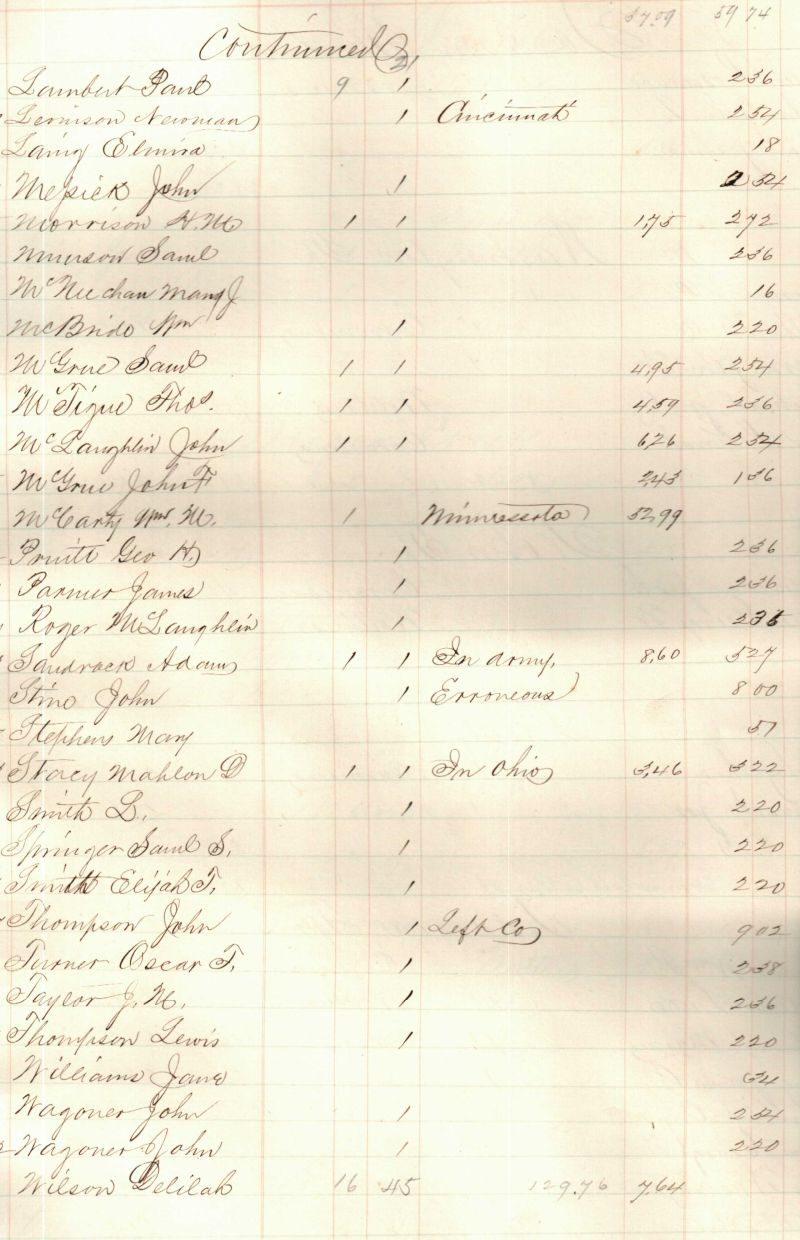 37.09 59 74
Continued 21
Lambert Paul 9 1 236
Levinson Newman 1 Cincinnati 254
Laing Elmira 18
Messick John 1 254
Morrison H. M 1 1 1,75 272
Saml 1 236
Mc 16
McBride Wm 1 220
McGrue Saml 1 1 4,95 254
McTigue Thos. 1 1 4,59 236
McLaughlin John 1 1 6,26 254
McGrue John F 2,43 136
McCarty Wm. M. 1 Minnessota 52,99
Pruitt Geo H. 1 236
Parmer James 1 236
Roger McLaughlin 1 236
Sandrack Adam 1 1 In army, 8,60 527
Stino John 1 Erroneous 8 00
Stephens Mary 51
Stacy Mahlon D 1 1 In Ohio 3,46 322
Smith L. 1 220
Springer Saml S. 1 220
Smith Elijah T. 1 220
Thompson John 1 Left Co 902
Turner Oscar T. 1 238
Taylor J. M. 1 236
Thompson Lewis 1 220
Williams Jane 64
Wagoner John 1 254
Wagoner John 1 220
Wilson Delilah 16 45 129.76 7,64